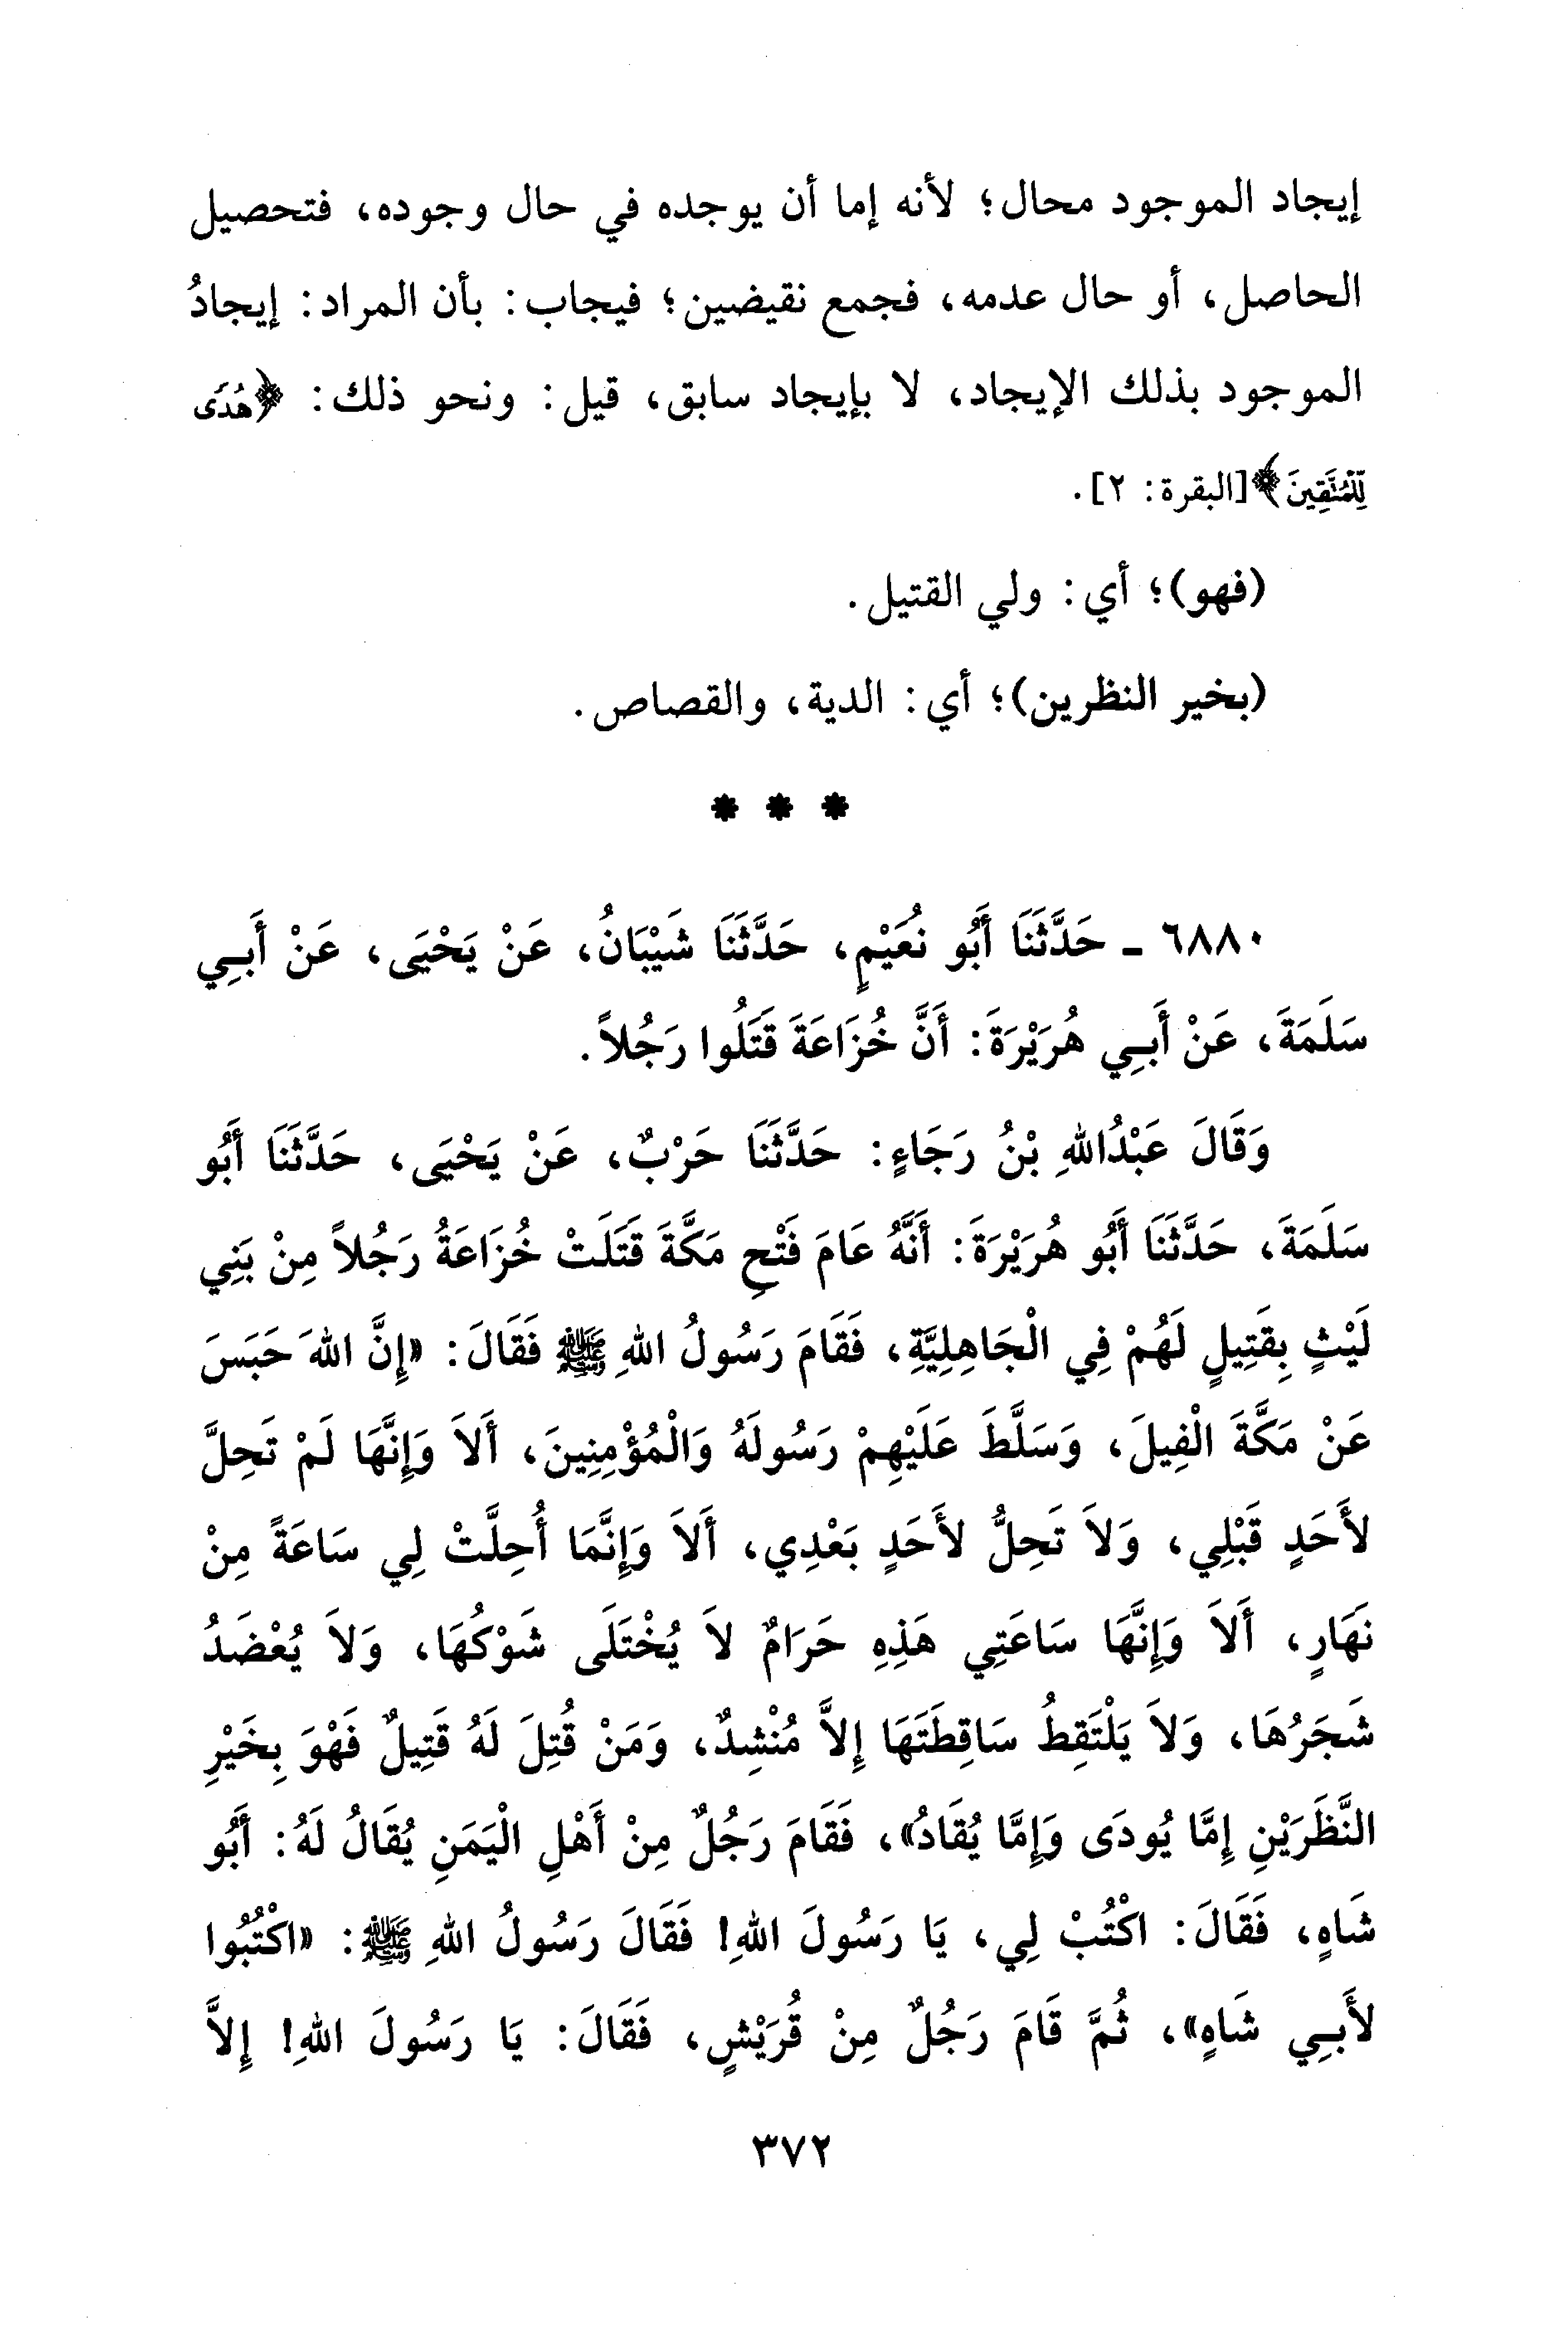 إيجاد الموجود محال؛ لأنه إما أن يوجده في حال وجوده، فتحصيل
الحاصل، أو حال عدمه، فجمع نقيضين؛ فيجاب: بأن المراد: إيجادُ
الموجود بذلك الإيجاد، لا بإيجاد سابق، قيل: ونحو ذلك: ﴿هُدًى
لِّلْمُتَّقِينَ﴾[البقرة: ٢].
(فهو)؛ أي: ولي القتيل.
(بخير النظرين)؛ أي: الدية، والقصاص.
* * *
٦٨٨٠ ـ حَدَّثَنَا أَبُو نُعَيْمٍ، حَدَّثَنَا شَيْبَانُ، عَنْ يَحْيَى، عَنْ أَبِي
سَلَمَةَ، عَنْ أَبِي هُرَيْرَةَ: أَنَّ خُزَاعَةَ قَتَلُوا رَجُلاً.
وَقَالَ عَبْدُاللهِ بْنُ رَجَاءٍ: حَدَّثَنَا حَرْبٌ، عَنْ يَحْيَى، حَدَّثَنَا أَبُو
سَلَمَةَ، حَدَّثَنَا أَبُو هُرَيْرَةَ: أَنَّهُ عَامَ فَتْحِ مَكَّةَ قَتَلَتْ خُزَاعَةُ رَجُلاً مِنْ بَنِي
لَيْثٍ بِقَتِيلٍ لَهُمْ فِي الْجَاهِلِيَّةِ، فَقَامَ رَسُولُ اللهِ ﷺ فَقَالَ: «إِنَّ اللهَ حَبَسَ
عَنْ مَكَّةَ الْفِيلَ، وَسَلَّطَ عَلَيْهِمْ رَسُولَهُ وَالْمُؤْمِنِينَ، أَلاَ وَإِنَّهَا لَمْ تَحِلَّ
لأَحَدٍ قَبْلِي، وَلاَ تَحِلُّ لأَحَدٍ بَعْدِي، أَلاَ وَإِنَّمَا أُحِلَّتْ لِي سَاعَةً مِنْ
نَهَارٍ، أَلاَ وَإِنَّهَا سَاعَتِي هَذِهِ حَرَامٌ لاَ يُخْتَلَى شَوْكُهَا، وَلاَ يُعْضَدُ
شَجَرُهَا، وَلاَ يَلْتَقِطُ سَاقِطَتَهَا إِلاَّ مُنْشِدٌ، وَمَنْ قُتِلَ لَهُ قَتِيلٌ فَهْوَ بِخَيْرِ
النَّظَرَيْنِ إِمَّا يُودَى وَإِمَّا يُقَادُ»، فَقَامَ رَجُلٌ مِنْ أَهْلِ الْيَمَنِ يُقَالُ لَهُ: أَبُو
شَاهٍ، فَقَالَ: اكْتُبْ لِي، يَا رَسُولَ اللهِ! فَقَالَ رَسُولُ اللهِ ﷺ: «اكْتُبُوا
لأَبِي شَاهٍ»، ثُمَّ قَامَ رَجُلٌ مِنْ قُرَيْشٍ، فَقَالَ: يَا رَسُولَ اللهِ! إِلاَّ
٣٧٢